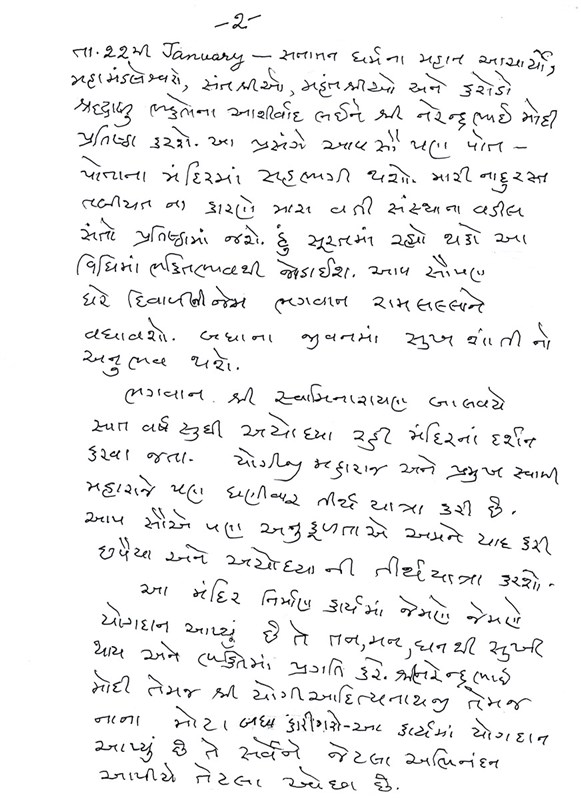 -2-
તા. ૨૨મી January – સનાતન ધર્મના મહાન આચાર્યો,
મહામંડલેશ્વરો, સંતશ્રીઓ, મહંતશ્રીઓ અને કરોડો
શ્રદ્ધાળુ ભક્તોના આશીર્વાદ લઈને શ્રી નરેન્દ્રભાઈ મોદી
પ્રતિષ્ઠા કરશે. આ પ્રસંગે આપ સૌ પણ પોત –
પોતાના મંદિરમાં સહભાગી થશો. મારી નાદુરસ્ત
તબીયત ના કારણે મારા વતી સંસ્થાના વડીલ
સંતો પ્રતિષ્ઠામાં જશે. હું સૂરતમાં રહ્યો થકો આ
વિધિમાં ભક્તિભાવથી જોડાઈશ. આપ સૌપણ
ઘરે દિવાળીની જેમ ભગવાન રામલલ્લાને
વધાવશો. બધાના જીવનમાં સુખ શાંતીનો
અનુભવ થશે.
ભગવાન શ્રી સ્વામિનારાયણ બાલવયે
સાત વર્ષ સુધી અયોધ્યા રહી મંદિરનાં દર્શન
કરવા જતા. યોગીજી મહારાજ અને પ્રમુખ સ્વામી
મહારાજે પણ ઘણીવાર તીર્થ યાત્રા કરી છે.
આપ સૌએ પણ અનુકૂળતાએ અમને યાદ કરી
છપૈયા અને અયોધ્યા ની તીર્થયાત્રા કરશો.
આ મંદિર નિર્માણ કાર્યમાં જેમણે જેમણે
યોગદાન આપ્યું છે તે તન, મન, ધનથી સુખી
થાય અને ભક્તિમાં પ્રગતિ કરે. શ્રીનરેન્દ્રભાઈ
મોદી તેમજ શ્રી યોગીઆદિત્યનાથજી તેમજ
નાના મોટા બધા કારીગરો-આ કાર્યમાં યોગદાન
આપ્યું છે તે સર્વેને જેટલા અભિનંદન
આપીયે તેટલા ઓછા છે.